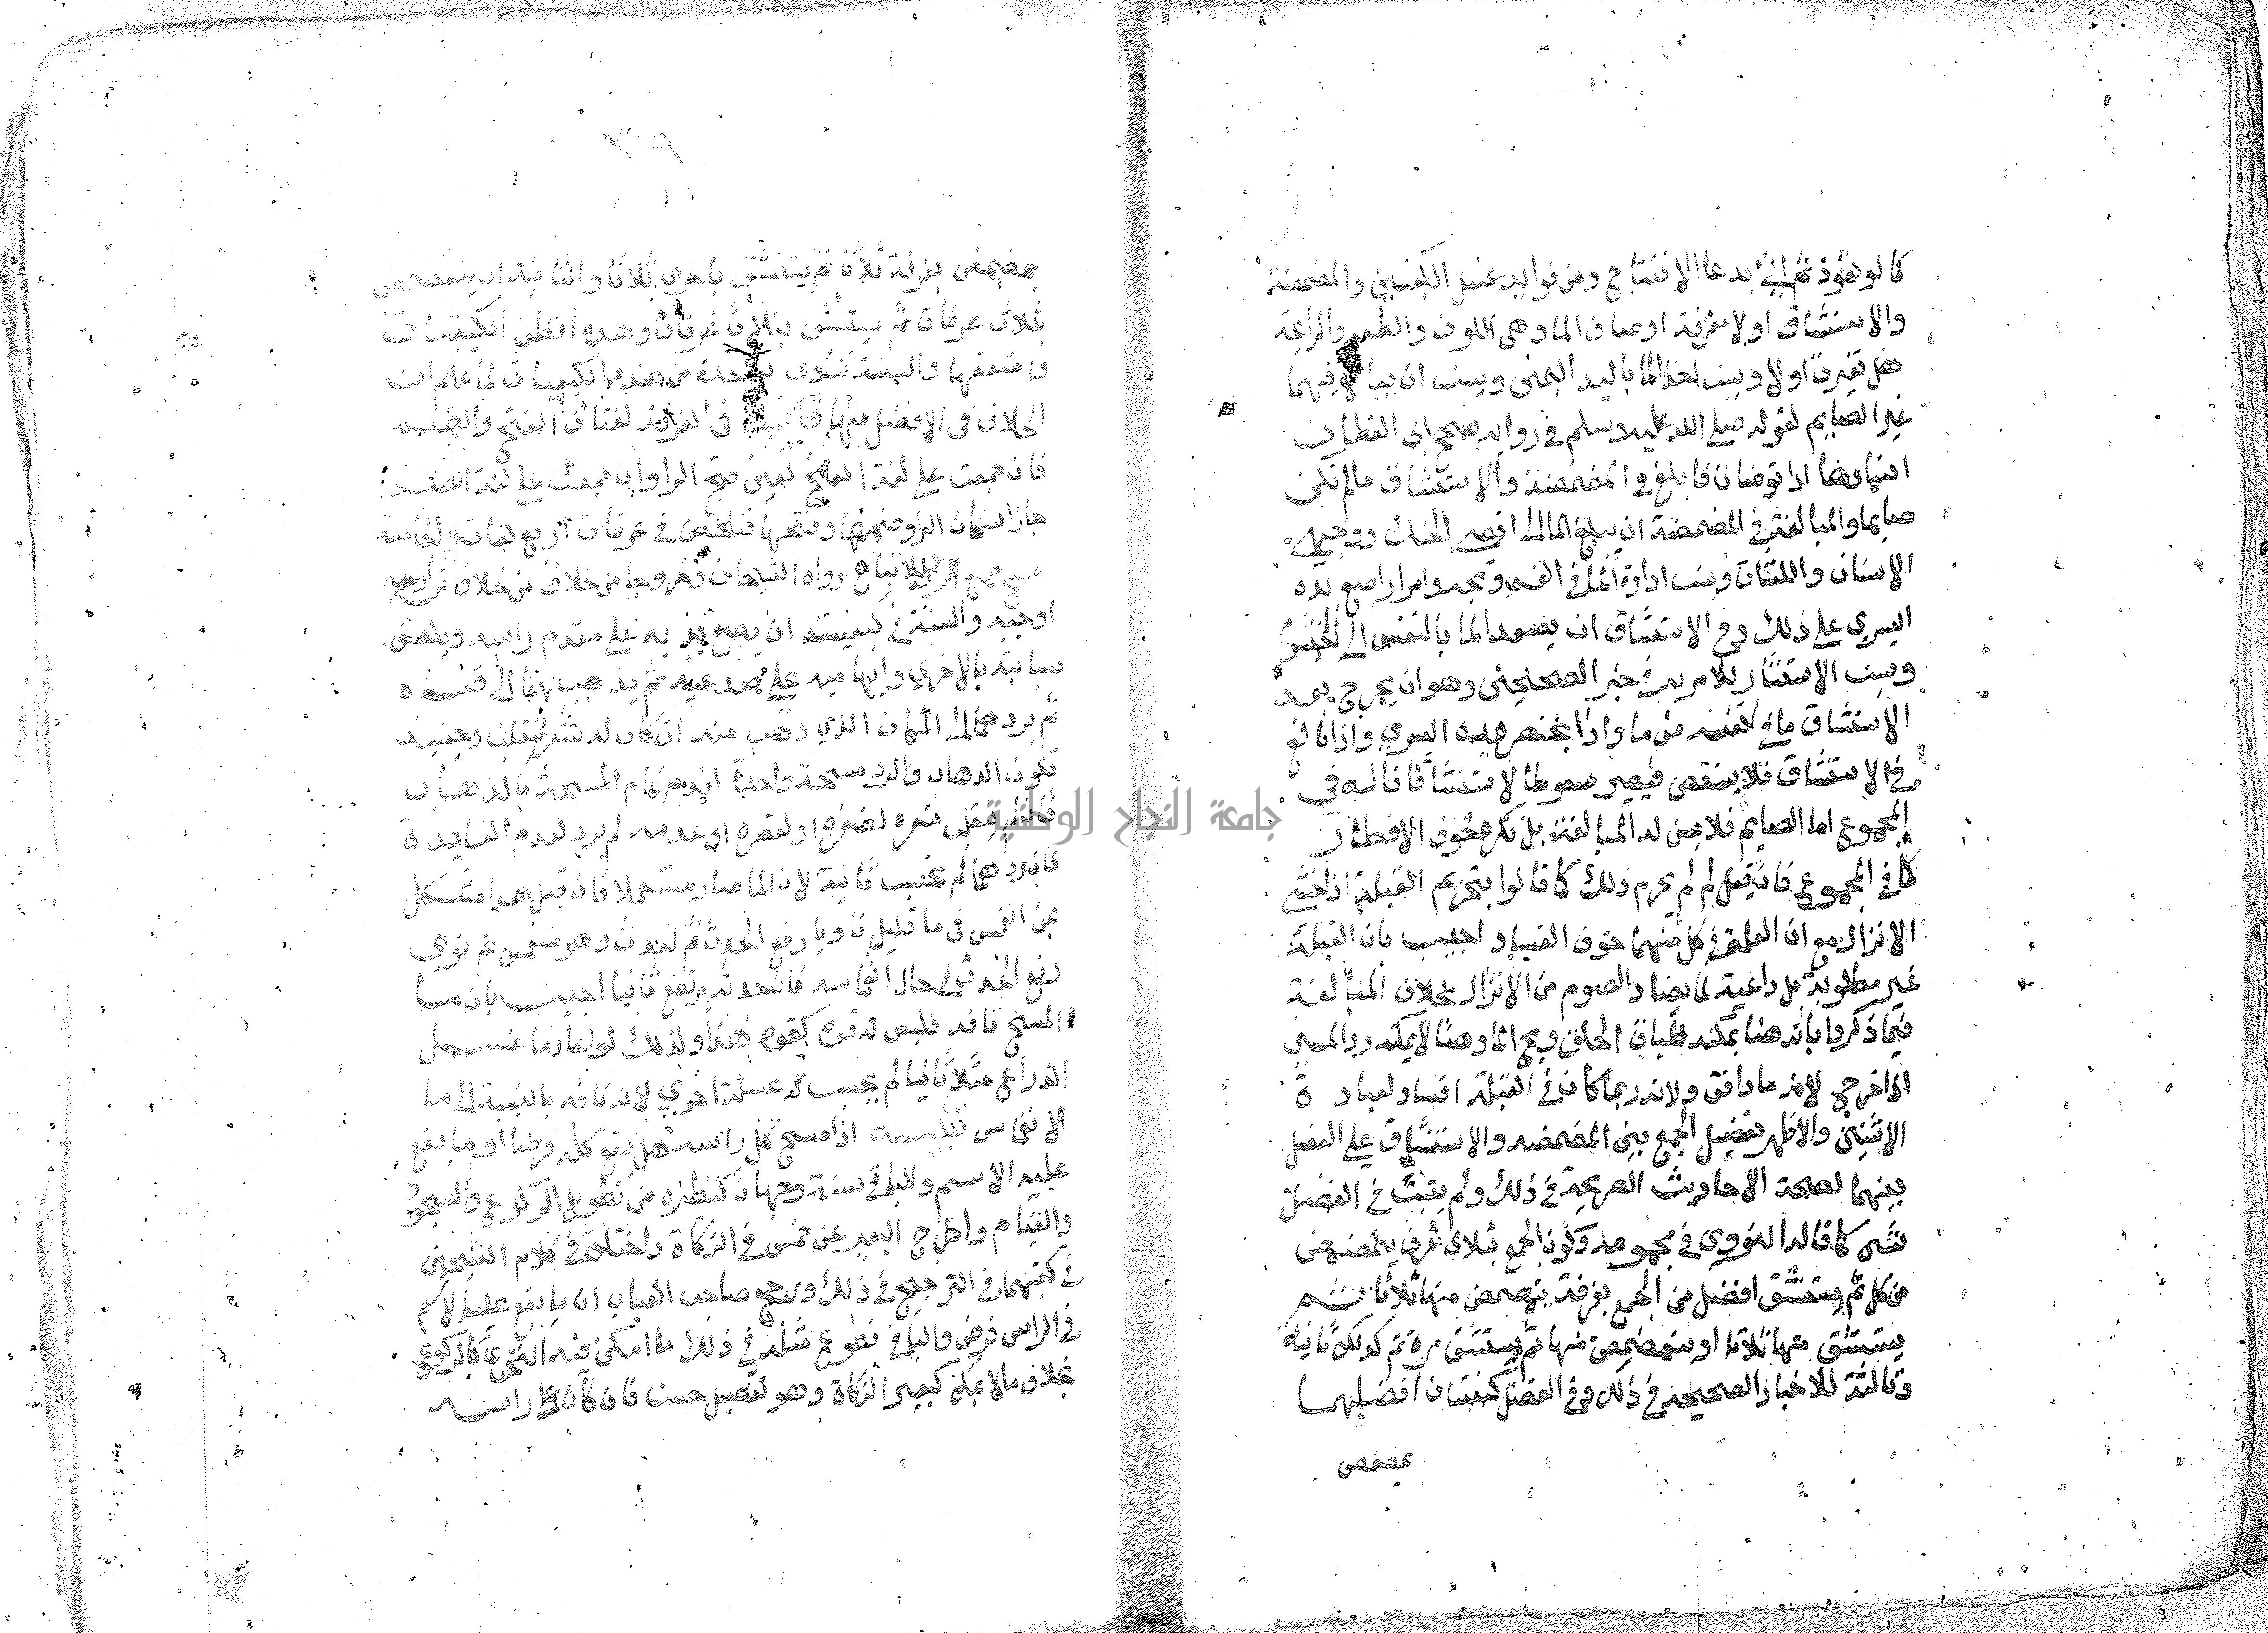 كما لو تعوذ ثم اتى بدعا الافتتاح ومن فوايد غسل الكفين والمضمضة
والاستنشاق اولا معرفة اوصاف الما وهي اللون والطعم والرايحة
هل تغيرت اولا ويسن اخذ الما باليد اليمنى ويسن ان يبالغ فيهما
غير الصايم لقوله صلى الله عليه وسلم في رواية صحح ابن القطان
اسنادها اذا توضات فابلغ في المضمضة والاستنشاق مالم تكن
صايما والمبالغة في المضمضة ان يبلغ الما الى اقصى الحنك ووجهي
الاسنان واللثات ويسن ادارة الما في الفم ومجه وامرار اصبع يده
اليسري على ذلك وفي الاستنشاق ان يصعد الما بالنفس الى الخيشوم
ويسن الاستنثار للامر به في خبر الصحيحين وهو ان يخرج بعد
الاستنشاق ما في انفه من ما واذا بخنصر يده اليسري واذا بالغ
في الاستنشاق فلا يستقصي فيصير سعوطا لا استنشاقا قاله في
المجموع اما الصايم فلا يسن له المبالغة بل تكره لخوف الافطار
كما في المجموع فان قيل لم لم يحرم ذلك كما قالوا بتحريم القبلة اذا خشي
الانزال مع ان العلة في كل منهما خوف الفساد اجيب بان القبلة
غير مطلوبة بل داعية لما يضاد الصوم من الانزال بخلاف المبالغة
فيما ذكر وبانه هنا يمكنه اطباق الحلق ومج الما وهنا لا يمكنه رد المني
اذا خرج لانه ما دافق ولانه ربما كان في القبلة افساد لعبادة
الاثنين والاظهر تفضيل الجمع بين المضمضه والاستنشاق على الفصل
بينهما لصحة الاحاديث الصريحة في ذلك ولم يثبت في الفصل
شي كما قاله النووي في مجموعه وكون الجمع بثلاث غرف يتمضمض
من كل ثم يستنشق افضل من الجمع بغرفة يتمضمض منها ثلاثا ثم
يستنشق منها ثلاثا او يتمضمض منها ثم يستنشق مرة ثم كذلك ثانية
وثالثة للاخبار الصحيحه في ذلك وفي الفصل كيفيتان افضلهما
يمضمض
يمضمض بغرفة ثلاثا ثم يستنشق باخري ثلاثا والثانية ان يتمضمض
بثلاث غرفات ثم يستنشق بثلاث غرفات وهذه انظف الكيفيات
واضعفها والسنة تتادى بواحدة من هذه الكيفيات لما علم ان
الخلاف في الافضل منها في الغرفة لغتان الفتح والضم
فان جمعت على لغة الفتح تعين فتح الرا وان جمعت على لغة الضم
جاز اسكان الرا وضمها وفتحها فتلخص في غرفات اربع لغات الخامسة
مسح جميع الراس للاتباع رواه الشيخان وخروجا من خلاف من خلاف من اوجبه
اوجبه والسنة في كيفيته ان يضع يديه على مقدم راسه ويلصق
سبابته بالاخري وابهاميه على صدغيه ثم يذهب بهما الى قفاه
ثم يردهما الى المكان الذي ذهب منه ان كان له شعر ينقلب وحينيذ
يكون الذهاب والرد مسحة واحدة لعدم تمام المسحة بالذهاب
فان لم ينقلب شعره لضفره او لقصره او عدمه لم يرد لعدم الفايدة
فان ردهما لم تحسب ثانية لان الما صار مستعملا فان قيل هذا مشكل
بمن انغمس في ما قليل ناويا رفع الحدث ثم احدث وهو منغمس ثم نوي
رفع الحدث في حال انغماسه فان حدثه يرتفع ثانيا اجيب بان ما
المسح تافه فليس له قوة كقوة هذا ولذلك لو اعاد ما غسل
الذراع مثلا ثانيا لم يحسب له غسلة اخري لانه تافه بالنسبة الى ما
الانغماس تنبيه اذا مسح كل راسه هل يقع كله فرضا او ما يقع
عليه الاسم والباقي سنة وجهان كنظيره من تطويل الركوع والسجود
والقيام واخراج البعير عن خمس في الزكاة واختلف في كلام الشيخين
في كتبهما في الترجيح في ذلك ورجح صاحب العباب ان ما يقع عليه الاسم
في الراس فرض والباقي تطوع مثله في ذلك ما امكن فيه التجزي كالركوع
بخلاف مالا يمكن كبعير الزكاة وهو تفصيل حسن فان كان على راسه
جامعة النجاح الوطنية